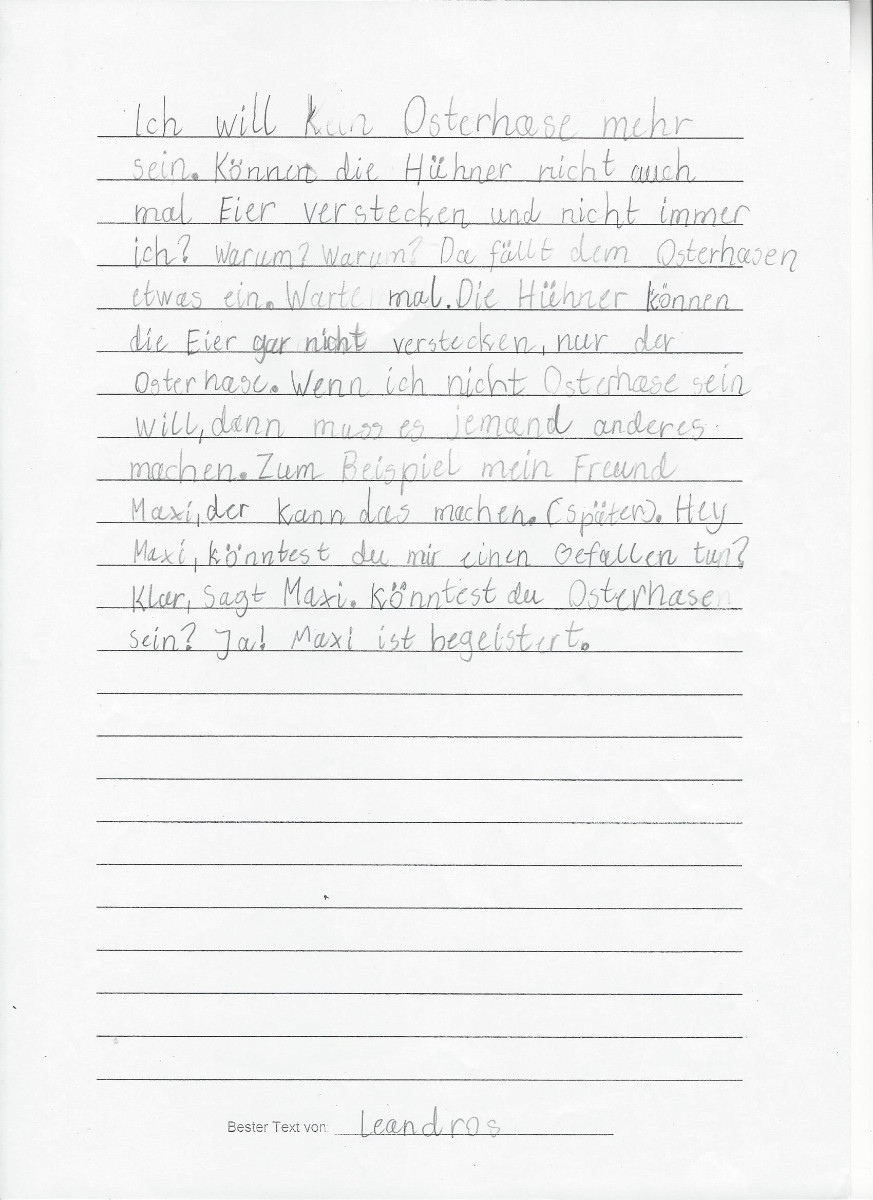 Ich will kein Osterhase mehr
sein. Können die Hühner nicht auch
mal Eier verstecken und nicht immer
ich? Warum? Warum? Da fällt dem Osterhasen
etwas ein. Warte mal. Die Hühner können
die Eier gar nicht verstecken, nur der
Osterhase. Wenn ich nicht Osterhase sein
will, dann muss es jemand anderes
machen. Zum Beispiel mein Freund
Maxi, der kann das machen. (später). Hey
Maxi, könntest du mir einen Gefallen tun?
Klar, sagt Maxi. Könntest du Osterhase
sein? Ja! Maxi ist begeistert.
Bester Text von: Leandros